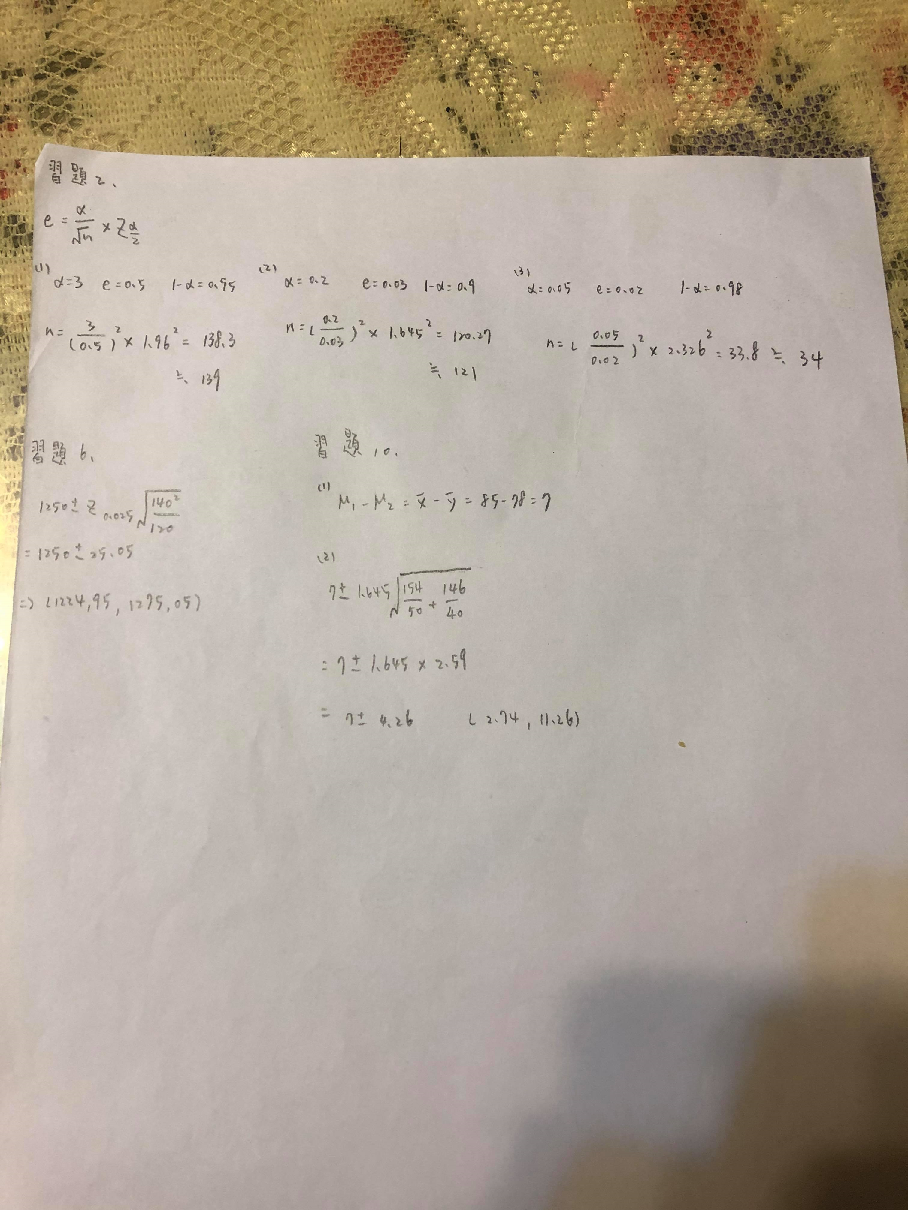 習題2、
e = α/√n × Z α/2
(1) α=3 e=0.5 1-α=0.95
n= 3/(0.5)² × 1.96² = 138.3
≒ 139
(2) α=0.2 e=0.03 1-α=0.9
n=(0.2/0.03)² × 1.645² = 120.27
≒ 121
(3) α=0.05 e=0.02 1-α=0.98
n=(0.05/0.02)² × 2.326² = 33.8 ≒ 34
習題6、
1250 ± Z 0.025 √(140²/120)
= 1250 ± 25.05
=> (1224,95, 1275,05)
習題10.
(1) M₁-M₂ = x̄ - ȳ = 85-78=7
(2)
7± 1.645 √(154/50 + 146/40)
= 7 ± 1.645 × 2.59
= 7± 4.26 (2.74, 11.26)